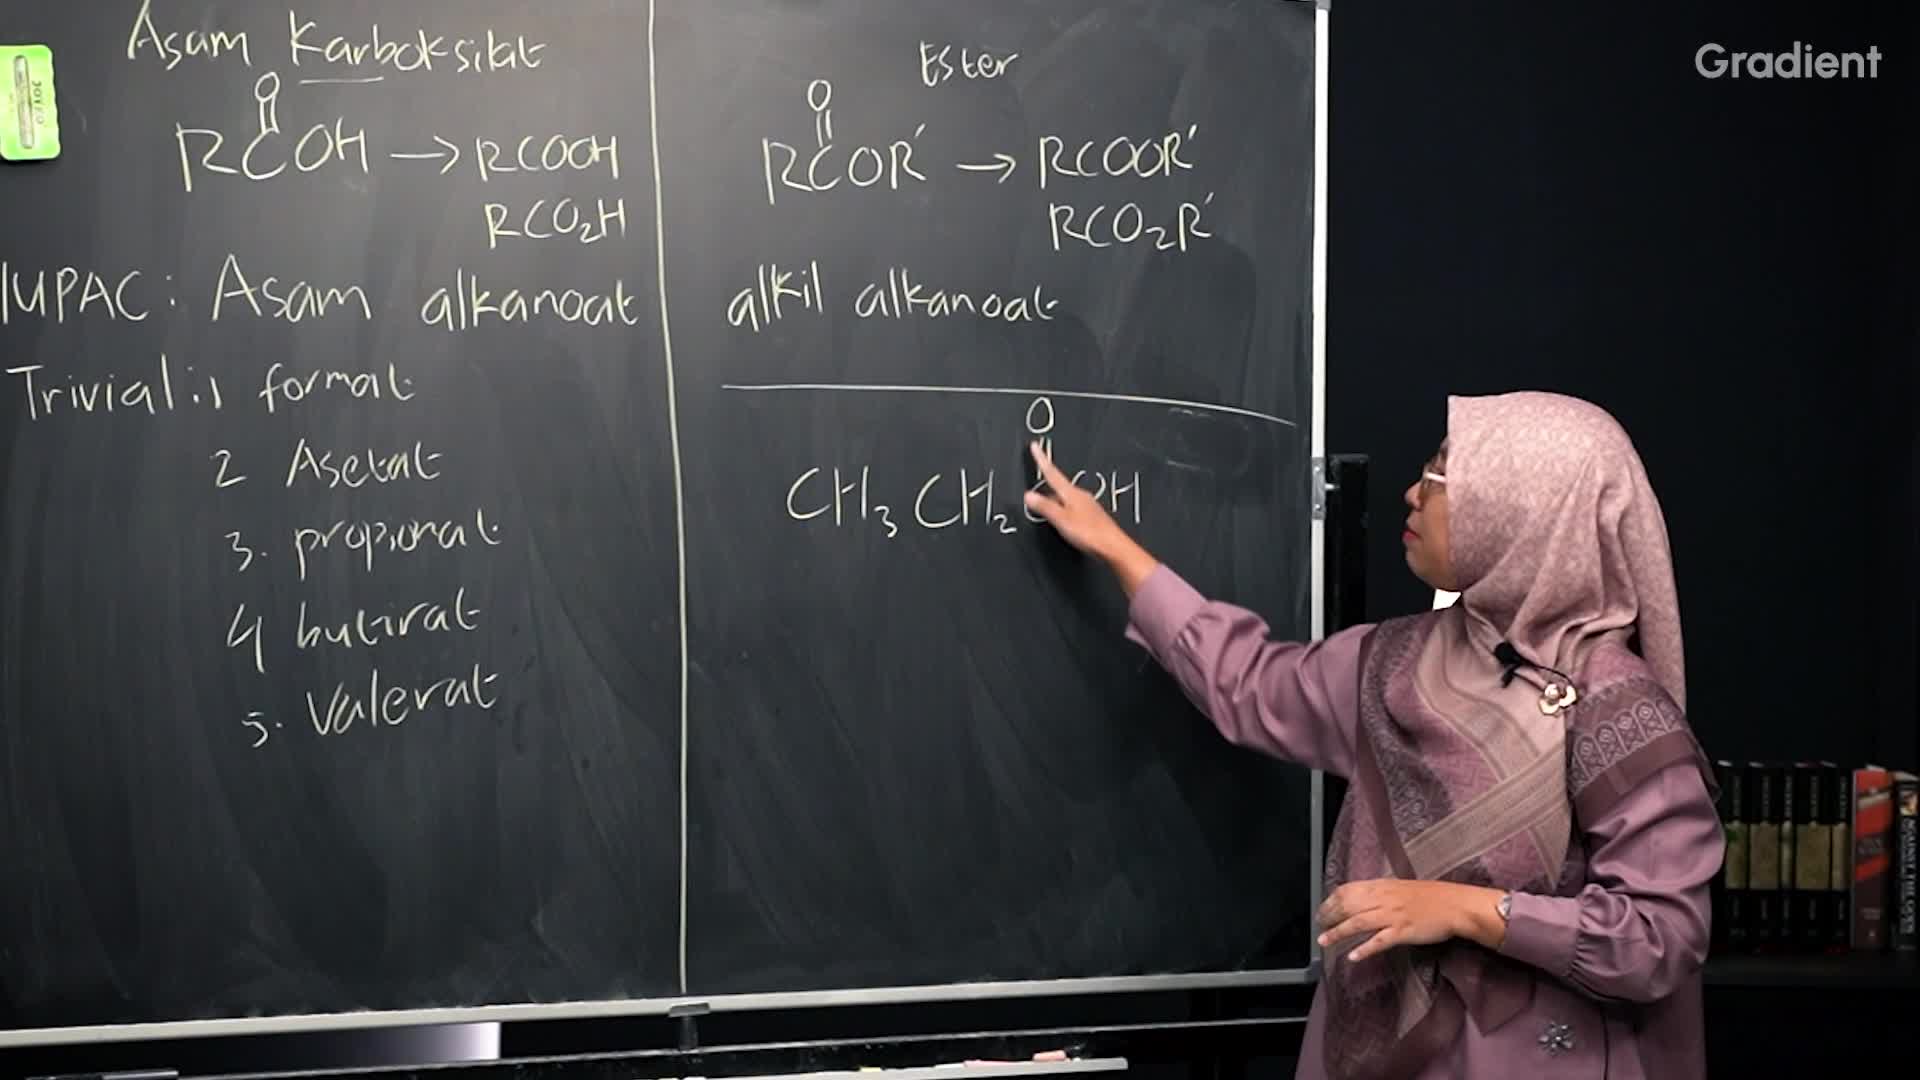 Asam Karboksilat
O
||
RCOH → RCOOH
RCO₂H
IUPAC: Asam alkanoat
Trivial: 1 format
2 Asetat
3. propionat
4 butirat
5. Valerat
Ester
O
||
RCOR' → RCOOR'
RCO₂R'
alkil alkanoat
O
||
CH₃CH₂COH
Gradient